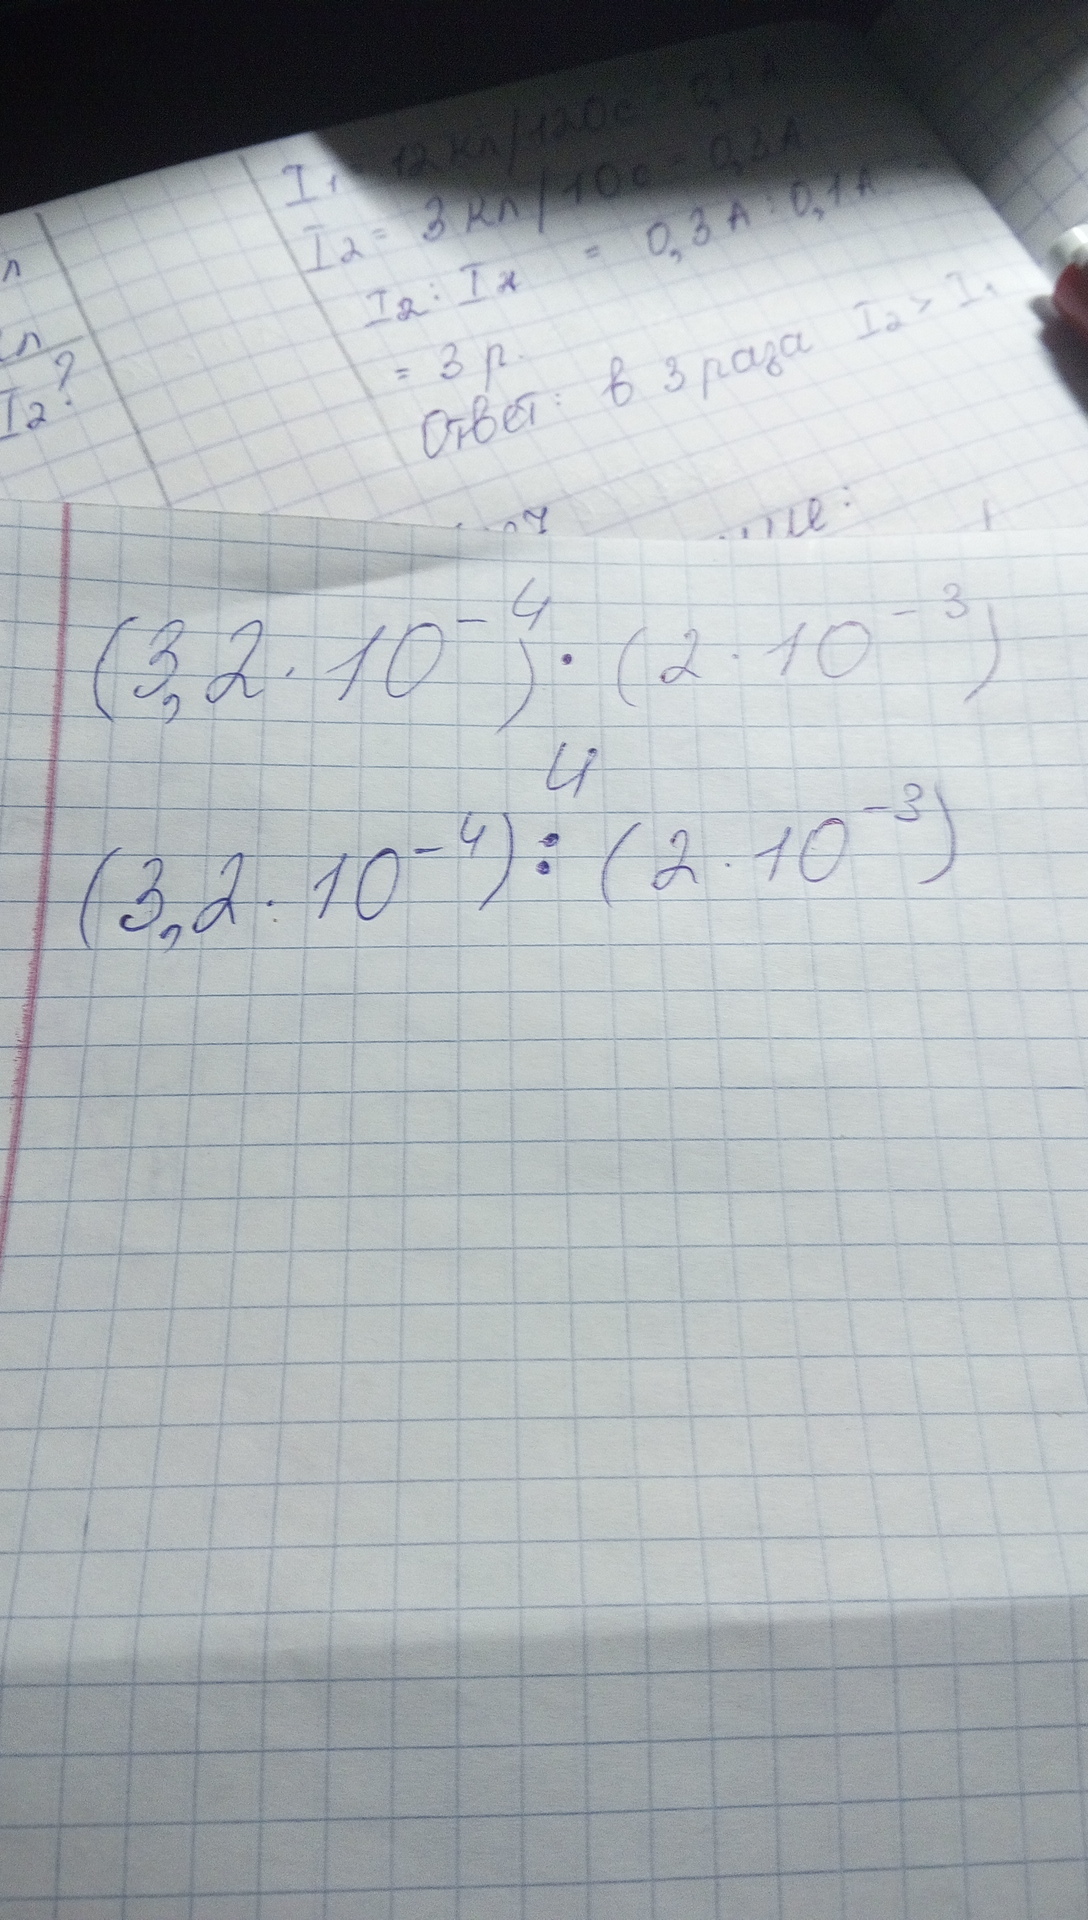 I₁ = 12 Кл/120с = 0,1 А
I₂ = 3 Кл/10с = 0,3 А
I₂ : I₁ = 0,3 А : 0,1 А =
= 3 р.
I₂?
Ответ: в 3 раза I₂ > I₁
(3,2 · 10⁻⁴) · (2 · 10⁻³)
и
(3,2 · 10⁻⁴) : (2 · 10⁻³)